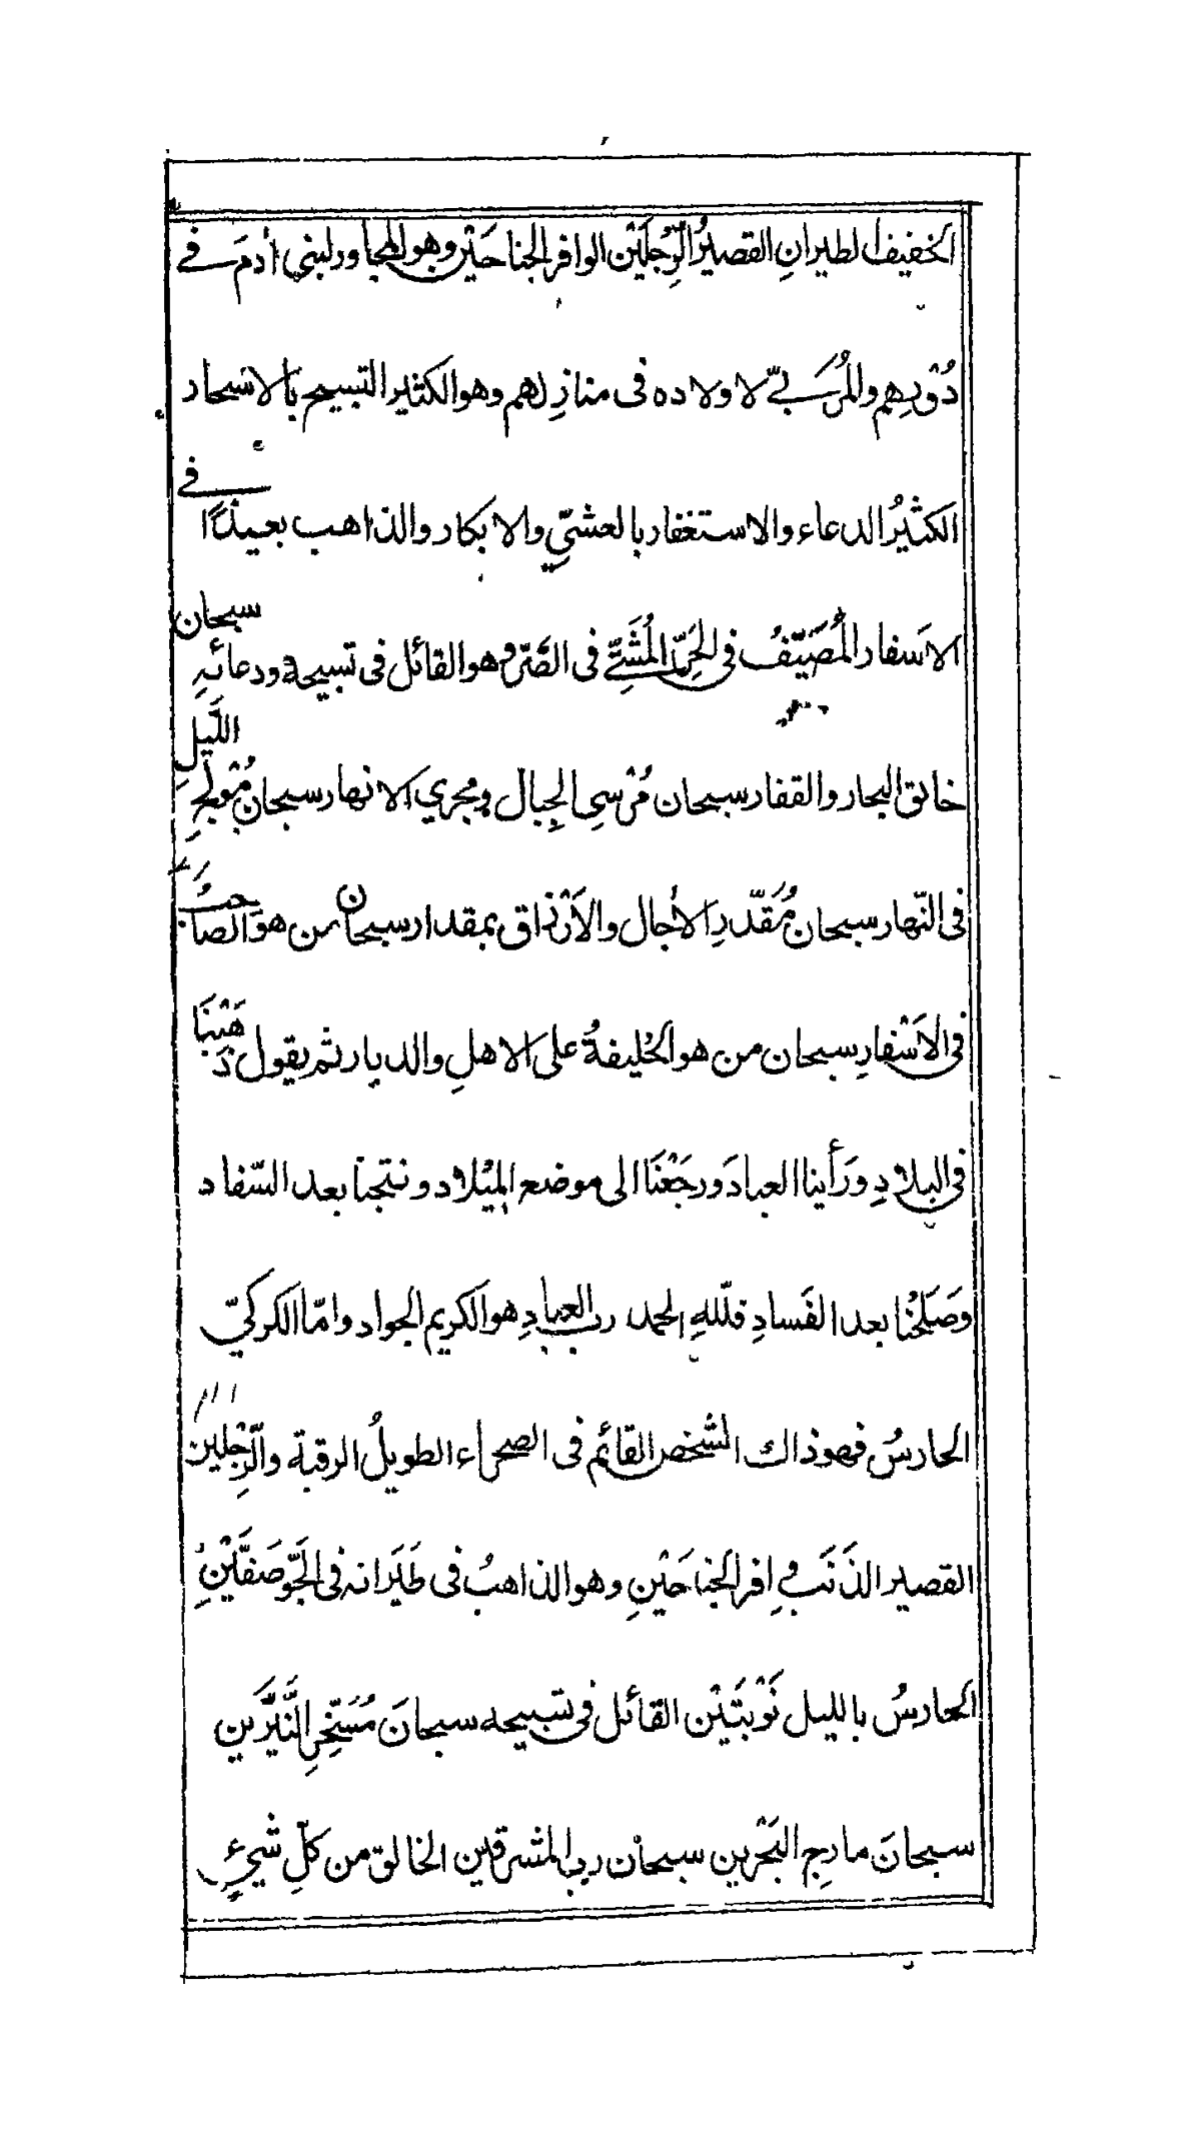 الخفيف الطيرانِ القصيرُ الرِّجْلَيْن الوافر الجناحَيْن وهو المجاور لبني أدمَ فے
دُوْرِهِم والمُرَبِّےّ لاولاده فى منازِلِهم وهو الكثير التسبيح بالاسَحار
الكثيرُ الدعاء والاستغفار بالعشىِّ والابكار والذاهب بعيدًا فے
الاسَفار المُصَيّفُ فى الحَرِّ المُشَتِّےّ فى الصَّرّ وهو القائل فى تسبيحه ودعائہِ سبحان
خالق البحار والقفار سبحان مُرْسِى الجِبال ومجري الانهار سبحان مُوْلِجِ اللَّيلِ
فى النّهار سبحان مُقَدّرِ الأجال والأَرْزاق بمقدار سبحان من هو الصّاحبُ
فى الاَسْفارِ سبحان من هو الخليفةُ على الاهلِ والديار ثم يقول ذَهَبْنَا
فى البلادِ ورَأينا العبادَ ورجَعْنَا الى موضع المِيْلاد ونتجنا بعد السّفاد
وصَلَحْنا بعد الفَسادِ فللّهِ الحمد رب العبادِ هو الكريم الجواد وامّا الكركيّ
الحارسُ فهو ذاك الشخص القائم فى الصحراء الطويلُ الرقبة والرِّجْلين
القصير الذَنَب وافر الجناحَيْنِ وهو الذاهبُ فى طَيَرانه فى الجَوّ صَفَّيْنِ
الحارسُ بالليل نَوْبَتَيْن القائل فى تسبيحه سبحانَ مُسَخِّرِ النَّيِّرَين
سبحانَ مارجِ البَحْرين سبحان رب المشرقين الخالق من كلّ شيءٍ